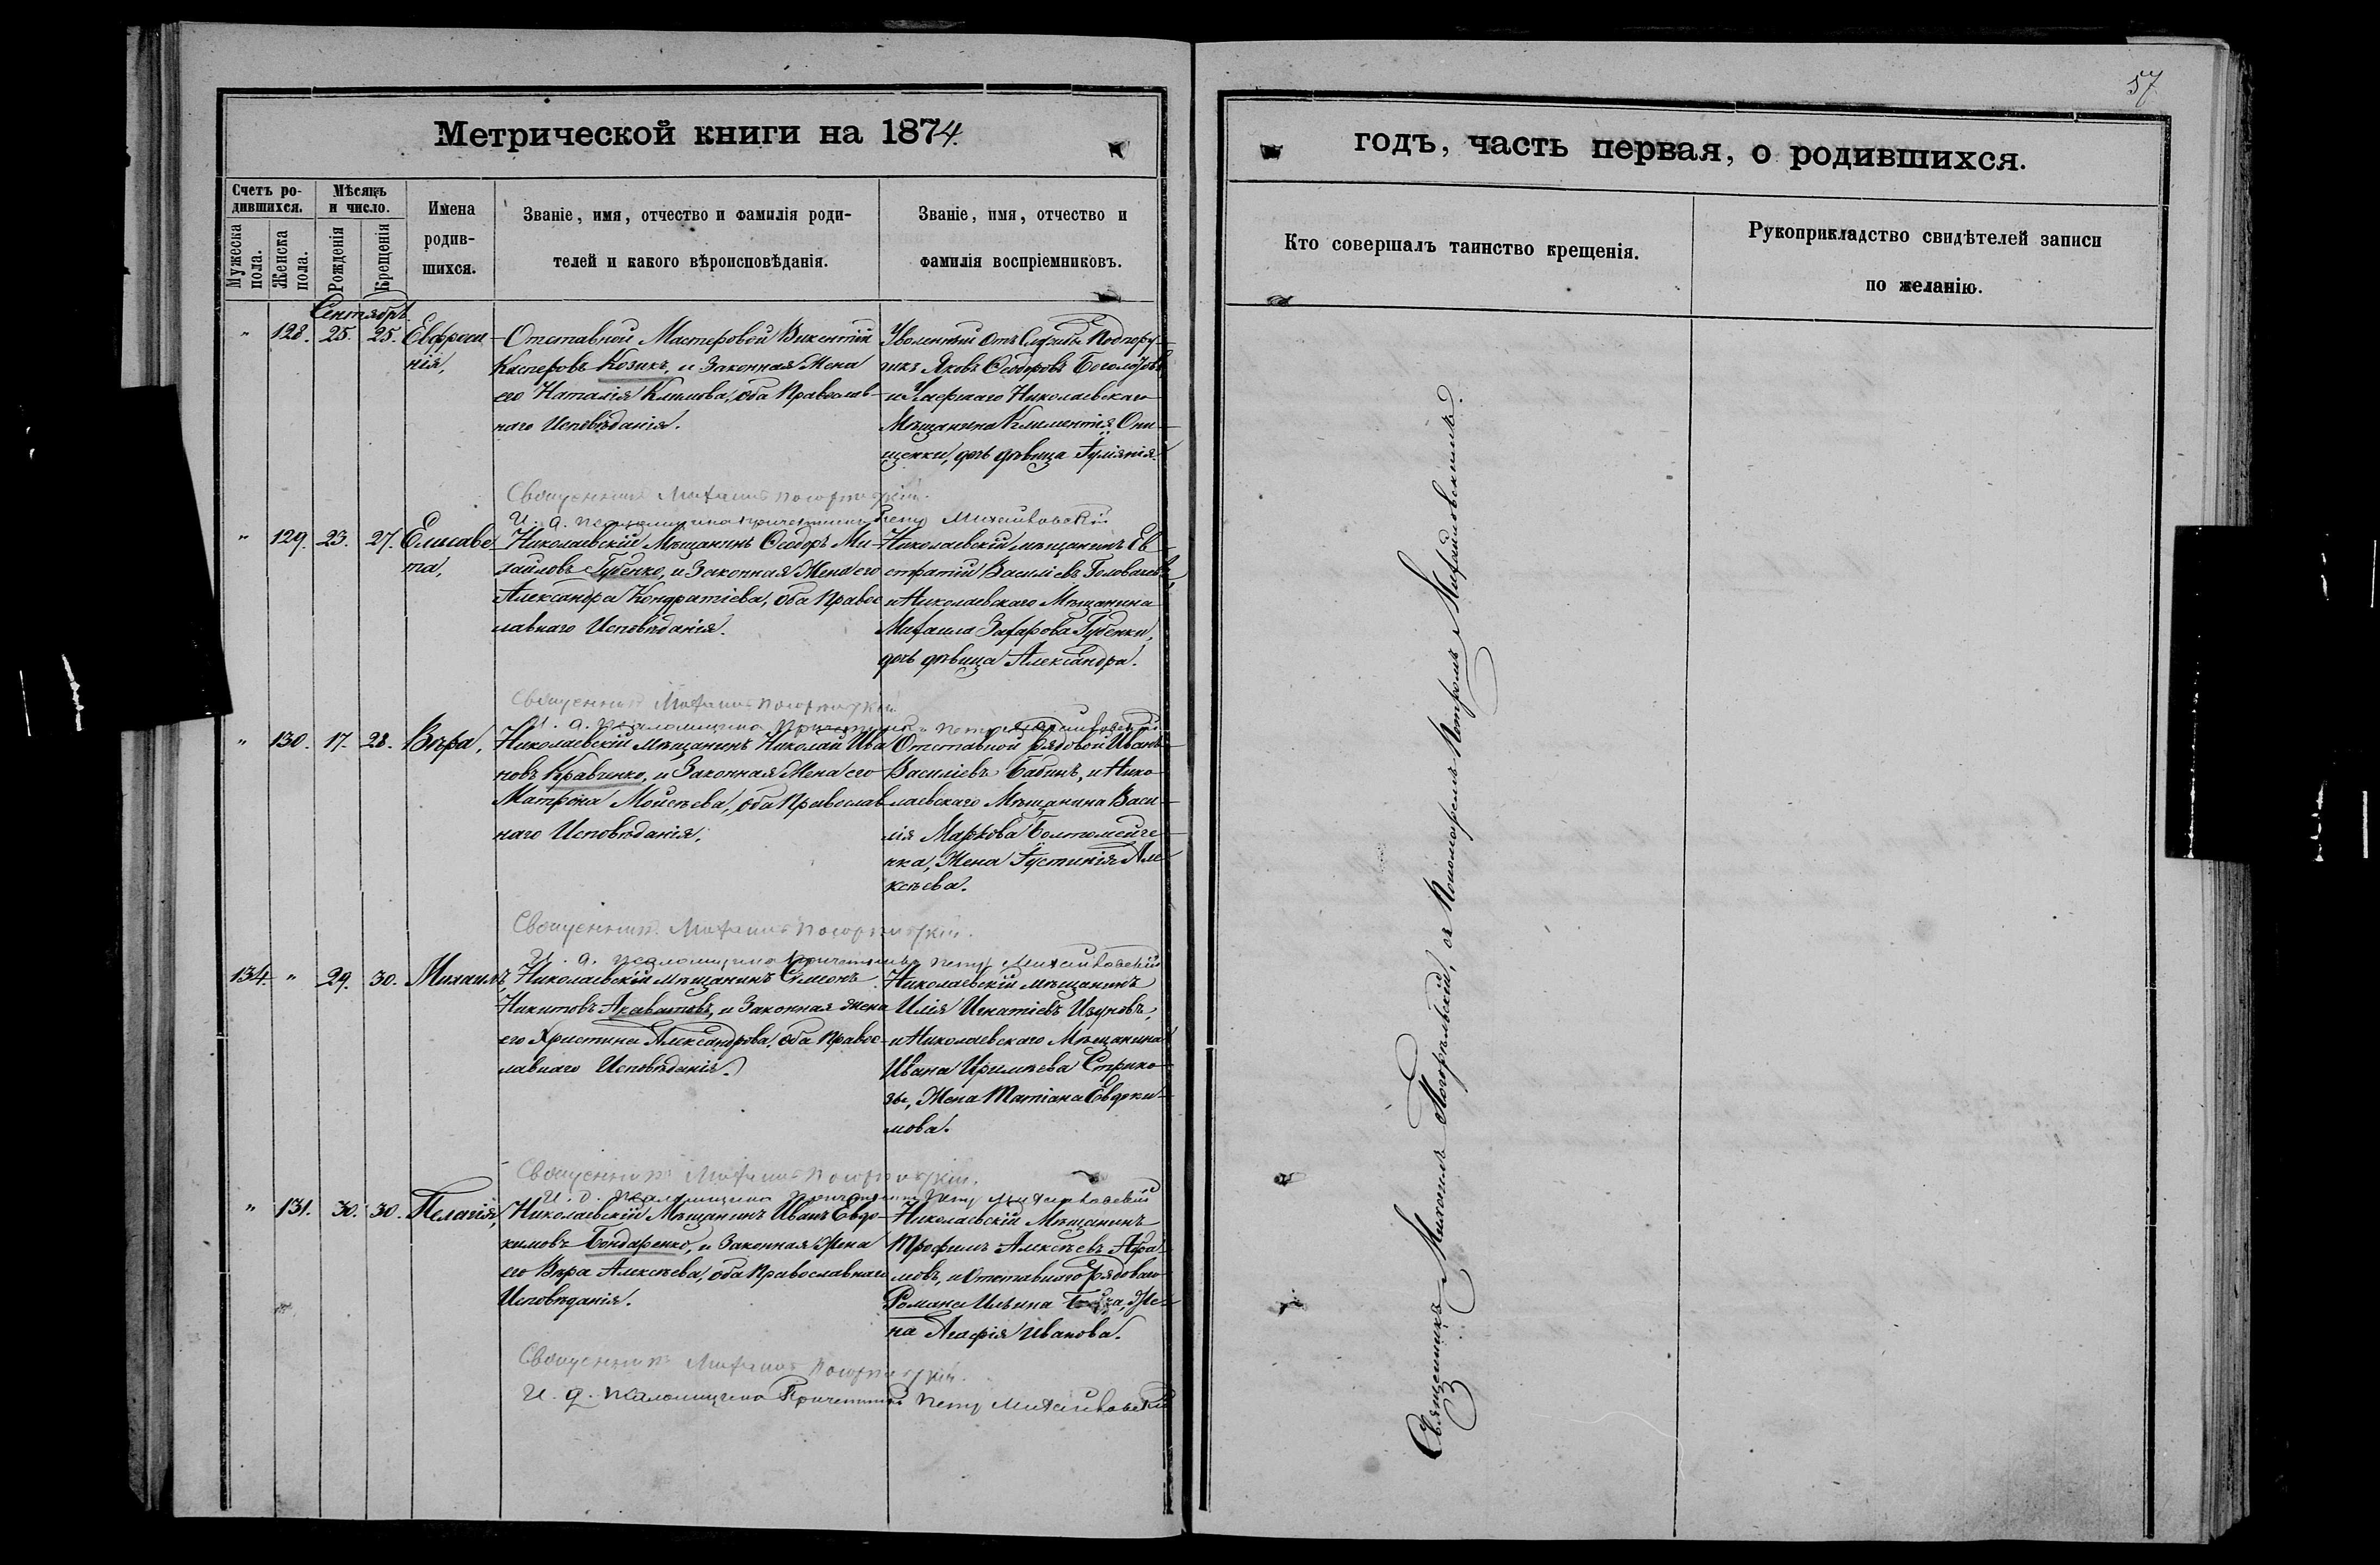 57
Метрической книги на 1874.
годъ, часть первая, о родившихся.
Счетъ ро-
дившихся.
Мужеска
пола.
Женска
пола.
Мѣсяцъ
и число.
Рожденія
Крещенія
Имена
родив-
шихся.
Званіе, имя, отчество и фамилія роди-
телей и какого вѣроисповѣданія.
Званіе, имя, отчество и
фамилія воспріемниковъ.
Кто совершалъ таинство крещенія.
Рукоприкладство свидѣтелей записи
по желанію.
Сентябрь
" 128. 25. 25. Евфроси-
нія,
Отставной Мастеровой Викентій
Касперовъ Козикъ, и Законная Жена
его Наталія Климова, оба Православ-
наго Исповѣданія.
Уволенный отъ Службы Подпору-
чикъ Яковъ Ѳеодоровъ
и Умершаго Николаевскаго
Мѣщанина Климентія Они-
щенки, дочь дѣвица Іуліанія.
Священникъ Михаилъ Погорѣльскій.
И. д. псаломщика причетникъ Петръ Михайловскій
" 129. 23. 27. Елисаве-
та,
Николаевскій Мѣщанинъ Ѳеодоръ Ми-
хайловъ Губенко, и Законная Жена его
Александра Кондратіева, оба Правос-
лавнаго Исповѣданія.
Николаевскій мѣщанинъ Ев-
стратій Василіевъ Головачевъ,
и Николаевскаго Мѣщанина
Михаила Захарова Губенки,
дочь дѣвица Александра.
Священникъ Михаилъ Погорѣльскій
И. д. псаломщика Причетникъ Петръ Михайловскій
" 130. 17. 28. Вѣра,
Николаевскій Мѣщанинъ Николай Ива-
новъ Кравченко, и Законная Жена его
Матрона Моисѣева, оба Православ-
наго Исповѣданія.
Отставной рядовой Иванъ
Василіевъ Бабинъ, и Нико-
лаевскаго Мѣщанина Васи-
лія Маркова
нка, Жена Іустинія Але-
ксѣева.
Священникъ Михаилъ Погорѣльскій.
И. д. псаломщика причетникъ Петръ Михайловскій
134. " 29. 30. Михаилъ,
Николаевскій мѣщанинъ Симеонъ
Никитовъ и Законная жена
его Христина Александрова, оба Правос-
лавнаго Исповѣданія.
Николаевскій мѣщанинъ
Илія Игнатіевъ
и Николаевскаго Мѣщанина
Ивана Стрико-
зы, Жена Татіана Евдоки-
мова.
Священникъ Михаилъ Погорѣльскій.
И. д. псаломщика причетникъ Петръ Михайловскій
" 131. 30. 30. Пелагія,
Николаевскій Мѣщанинъ Иванъ Евдо-
кимовъ Бондаренко, и Законная Жена
его Вѣра Алексѣева, оба Православнаго
Исповѣданія.
Николаевскій Мѣщанинъ
Трофимъ Алексѣевъ Абра-
мовъ, и Отставнаго рядоваго
Романа Ильина Же-
на Агафія Иванова.
Священникъ Михаилъ Погорѣльскій.
И. д. псаломщика Причетникъ Петръ Михайловскій
Священникъ Михаилъ Погорѣльскій, съ Пономаремъ Петромъ Михайловскимъ.